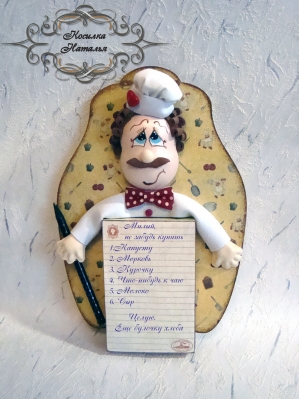 Косилка
Наталья
Милый,
не забудь купить
1. Капусту
2. Морковь
3. Курочку
4. Что-нибудь к чаю
5. Молоко
6. Сыр
Целую.
Еще булочку хлеба